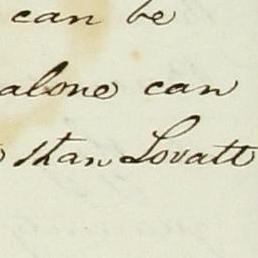 can be
alone can
than Lovatt